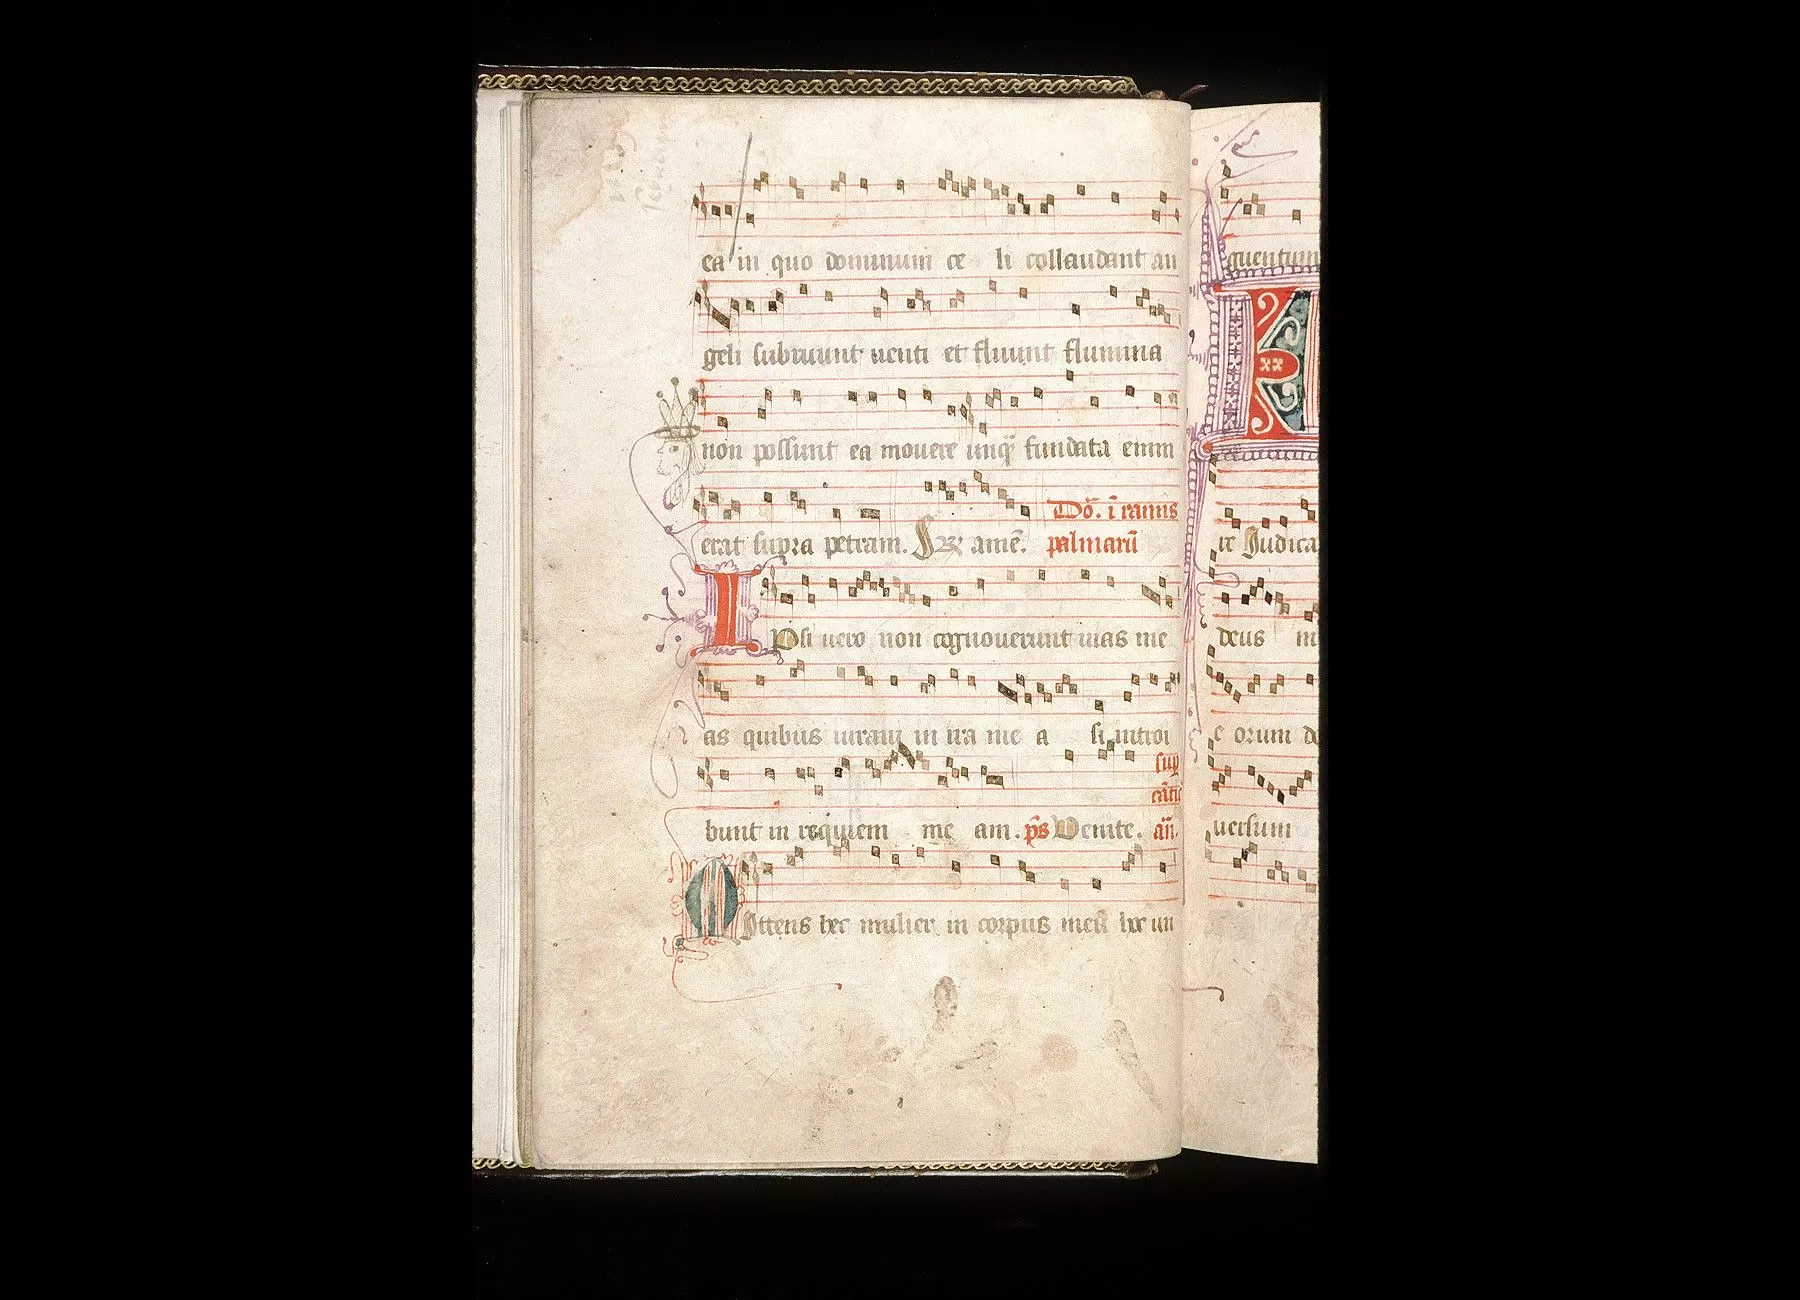 ea in quo dominum ce li collaudant an
geli subruunt uenti et fluunt flumina
non possunt ea mouere unq̄ fundata enim
erat supra petram. amē.
Dō. ī ramis
palmarū
IPsi uero non cognouerunt uias me
as quibus iuraui in ira me a si introi
bunt in requiem me am. p̄s Venite. an̄.
sup
cātic
MIttens hec mulier in corpus meū hoc un
guentum
re Iudica
deus m
e orum de
uersum